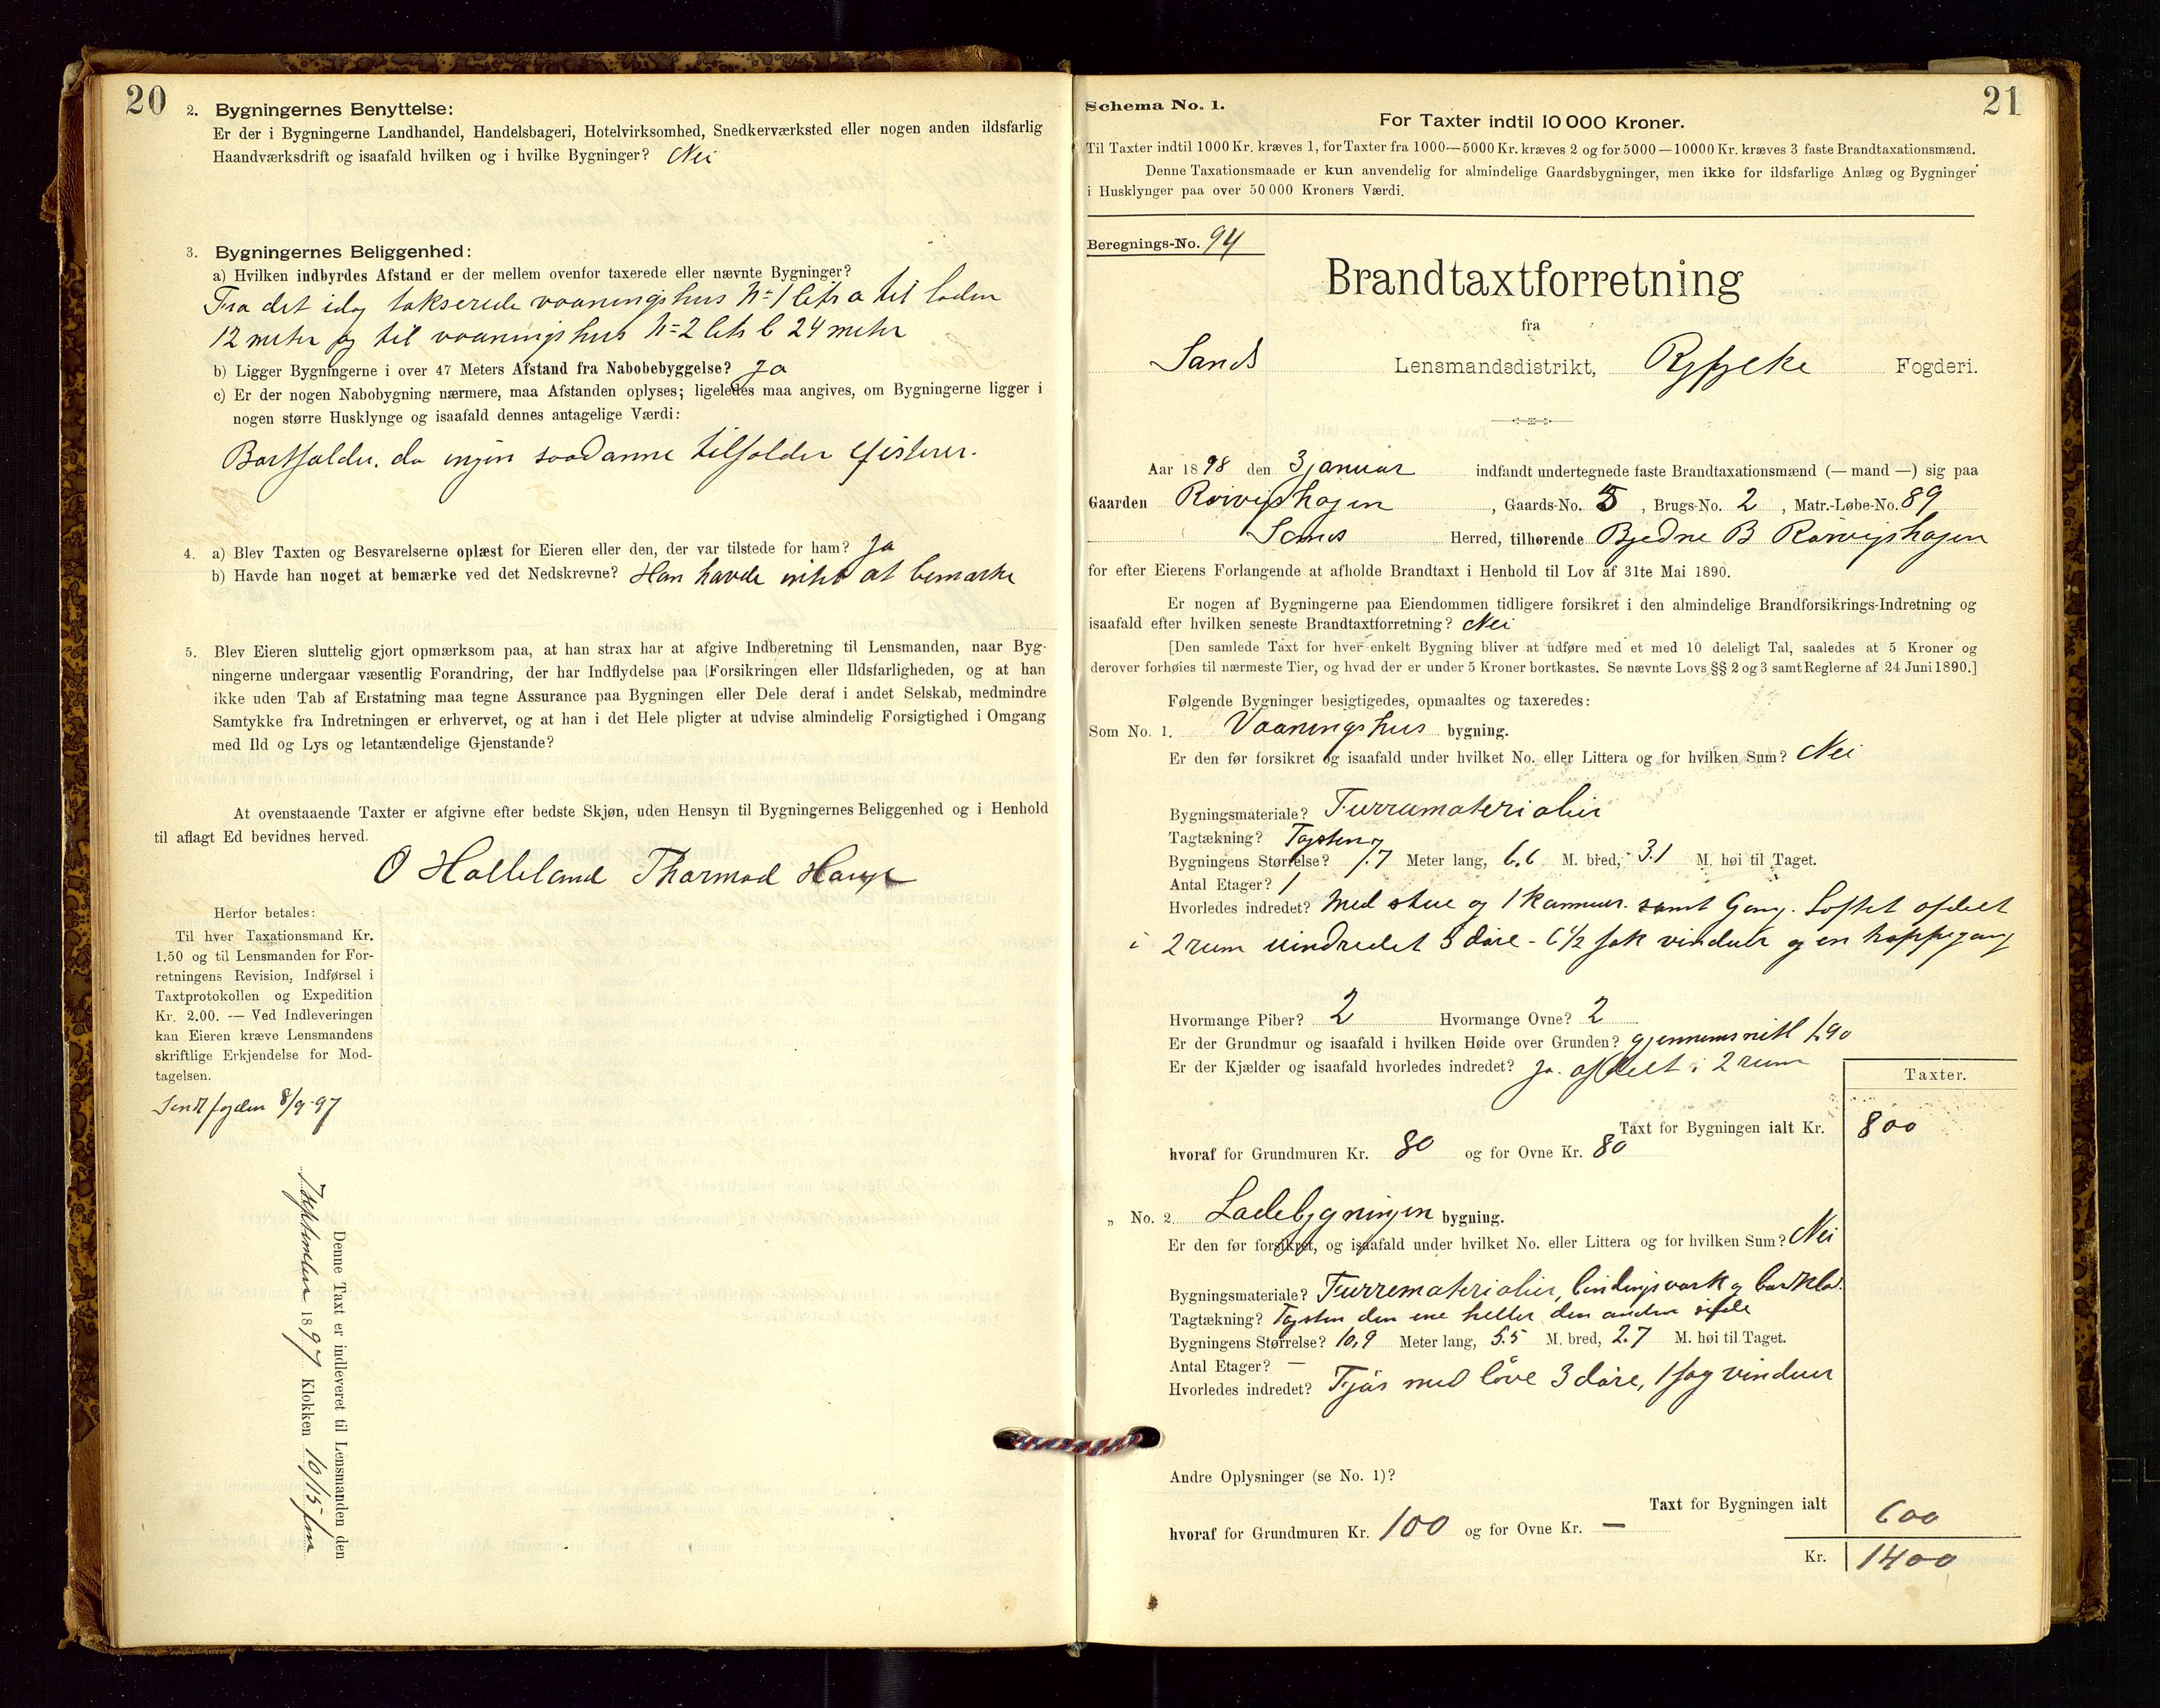 20
2. Bygningernes Benyttelse:
Er der i Bygningerne Landhandel, Handelsbageri, Hotelvirksomhed, Snedkerværksted eller nogen anden ildsfarlig
Haandværksdrift og isaafald hvilken og i hvilke Bygninger? Nei
3. Bygningernes Beliggenhed:
a) Hvilken indbyrdes Afstand er der mellem ovenfor taxerede eller nævnte Bygninger?
Fra det idag takserede vaaningshus No 1 litr a til laden
12 meter og til vaaningshus No 2 litr b 24 meter
b) Ligger Bygningerne i over 47 Meters Afstand fra Nabobebyggelse? Ja
c) Er der nogen Nabobygning nærmere, maa Afstanden oplyses; ligeledes maa angives, om Bygningerne ligger i
nogen større Husklynge og isaafald dennes antagelige Værdi:
Bortfalder, da ingen saadanne tilfælder
4. a) Blev Taxten og Besvarelserne oplæst for Eieren eller den, der var tilstede for ham? Ja
b) Havde han noget at bemærke ved det Nedskrevne? Han havde intet at bemærke
5. Blev Eieren sluttelig gjort opmærksom paa, at han strax har at afgive Indberetning til Lensmanden, naar Byg-
ningerne undergaar væsentlig Forandring, der har Indflydelse paa Forsikringen eller Ildsfarligheden, og at han
ikke uden Tab af Erstatning maa tegne Assurance paa Bygningen eller Dele deraf i andet Selskab, medmindre
Samtykke fra Indretningen er erhvervet, og at han i det Hele pligter at udvise almindelig Forsigtighed i Omgang
med Ild og Lys og letantændelige Gjenstande?
At ovenstaaende Taxter er afgivne efter bedste Skjøn, uden Hensyn til Bygningernes Beliggenhed og i Henhold
til aflagt Ed bevidnes herved.
O Halleland Tharmod
Herfor betales:
Til hver Taxationsmand Kr.
1.50 og til Lensmanden for For-
retningens Revision, Indførsel i
Taxtprotokollen og Expedition
Kr. 2.00. — Ved Indleveringen
kan Eieren kræve Lensmandens
skriftlige Erkjendelse for Mod-
tagelsen.
Sendt fogden 8/9-97
Denne Taxt er indleveret til Lensmanden den
7 september 1897 Klokken 10/15 fm
21
Schema No. 1.
For Taxter indtil 10 000 Kroner.
Til Taxter indtil 1000 Kr. kræves 1, for Taxter fra 1000—5000 Kr. kræves 2 og for 5000—10000 Kr. kræves 3 faste Brandtaxationsmænd.
Denne Taxationsmaade er kun anvendelig for almindelige Gaardsbygninger, men ikke for ildsfarlige Anlæg og Bygninger
i Husklynger paa over 50 000 Kroners Værdi.
Beregnings-No. 94
Brandtaxtforretning
fra
Sands Lensmandsdistrikt, Ryfylke Fogderi.
Aar 1898 den 3 januar indfandt undertegnede faste Brandtaxationsmænd (— mand —) sig paa
Gaarden Rørvigshagen, Gaards-No. 5, Brugs-No. 2, Matr.-Løbe-No. 89
Sands Herred, tilhørende Bjedne B Rørvigshagen
for efter Eierens Forlangende at afholde Brandtaxt i Henhold til Lov af 31te Mai 1890.
Er nogen af Bygningerne paa Eiendommen tidligere forsikret i den almindelige Brandforsikrings-Indretning og
isaafald efter hvilken seneste Brandtaxtforretning? Nei
[Den samlede Taxt for hver enkelt Bygning bliver at udføre med et med 10 deleligt Tal, saaledes at 5 Kroner og
derover forhøies til nærmeste Tier, og hvad der er under 5 Kroner bortkastes. Se nævnte Lovs §§ 2 og 3 samt Reglerne af 24 Juni 1890.]
Følgende Bygninger besigtigedes, opmaaltes og taxeredes:
Som No. 1. Vaaningshus bygning.
Er den før forsikret og isaafald under hvilket No. eller Littera og for hvilken Sum? Nei
Bygningsmateriale? Furrumaterialier
Tagtækning? Tagsten
Bygningens Størrelse? 7.7 Meter lang, 6.6 M. bred, 3.1 M. høi til Taget.
Antal Etager? 1
Hvorledes indredet? Med stue og 1 kammer samt Gang. Loftet afdelt
i 2 rum uindredet 3 døre - 6 1/2 fak vinduer og en trappegang
Hvormange Piber? 2 Hvormange Ovne? 2
Er der Grundmur og isaafald i hvilken Høide over Grunden? gjennemsnitl 1.90
Er der Kjælder og isaafald hvorledes indredet? Ja. afdelt i 2 rum
Taxter.
Taxt for Bygningen ialt Kr. 800
hvoraf for Grundmuren Kr. 80 og for Ovne Kr. 80
„ No. 2. Ladebygningen bygning.
Er den før forsikret, og isaafald under hvilket No. eller Littera og for hvilken Sum? Nei
Bygningsmateriale? Furrematerialier, bindingsværk og bordklæd.
Tagtækning? Tagsten den ene heller den anden side
Bygningens Størrelse? 10,9 Meter lang, 5.5 M. bred, 2.7 M. høi til Taget.
Antal Etager? —
Hvorledes indredet? Fjøs med løve 3 døre, 1 fag vinduer
Andre Oplysninger (se No. 1)?
Taxt for Bygningen ialt 600
hvoraf for Grundmuren Kr. 100 og for Ovne Kr. —
Kr. 1400